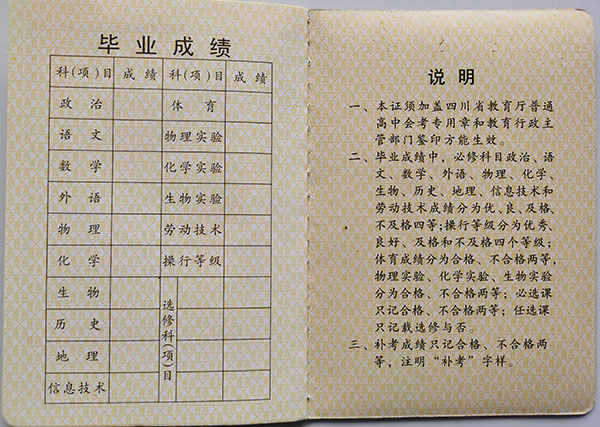 毕业成绩
科(项)目 成绩 科(项)目 成绩
政治 体育
语文 物理实验
数学 化学实验
外语 生物实验
物理 劳动技术
化学 操行等级
生物 选修科(项)目
历史
地理
信息技术
说明
一、本证须加盖四川省教育厅普通
高中会考专用章和教育行政主
管部门签印方能生效。
二、毕业成绩中，必修科目政治、语
文、数学、外语、物理、化学、
生物、历史、地理、信息技术和
劳动技术成绩分为优、良、及格、
不及格四等;操行等级分为优秀、
良好、及格和不及格四个等级；
体育成绩分为合格、不合格两等，
物理实验、化学实验、生物实验
分为合格、不合格两等；必选课
只记合格、不合格两等；任选课
只记载选修与否。
三、补考成绩只记合格、不合格两
等，注明“补考”字样。